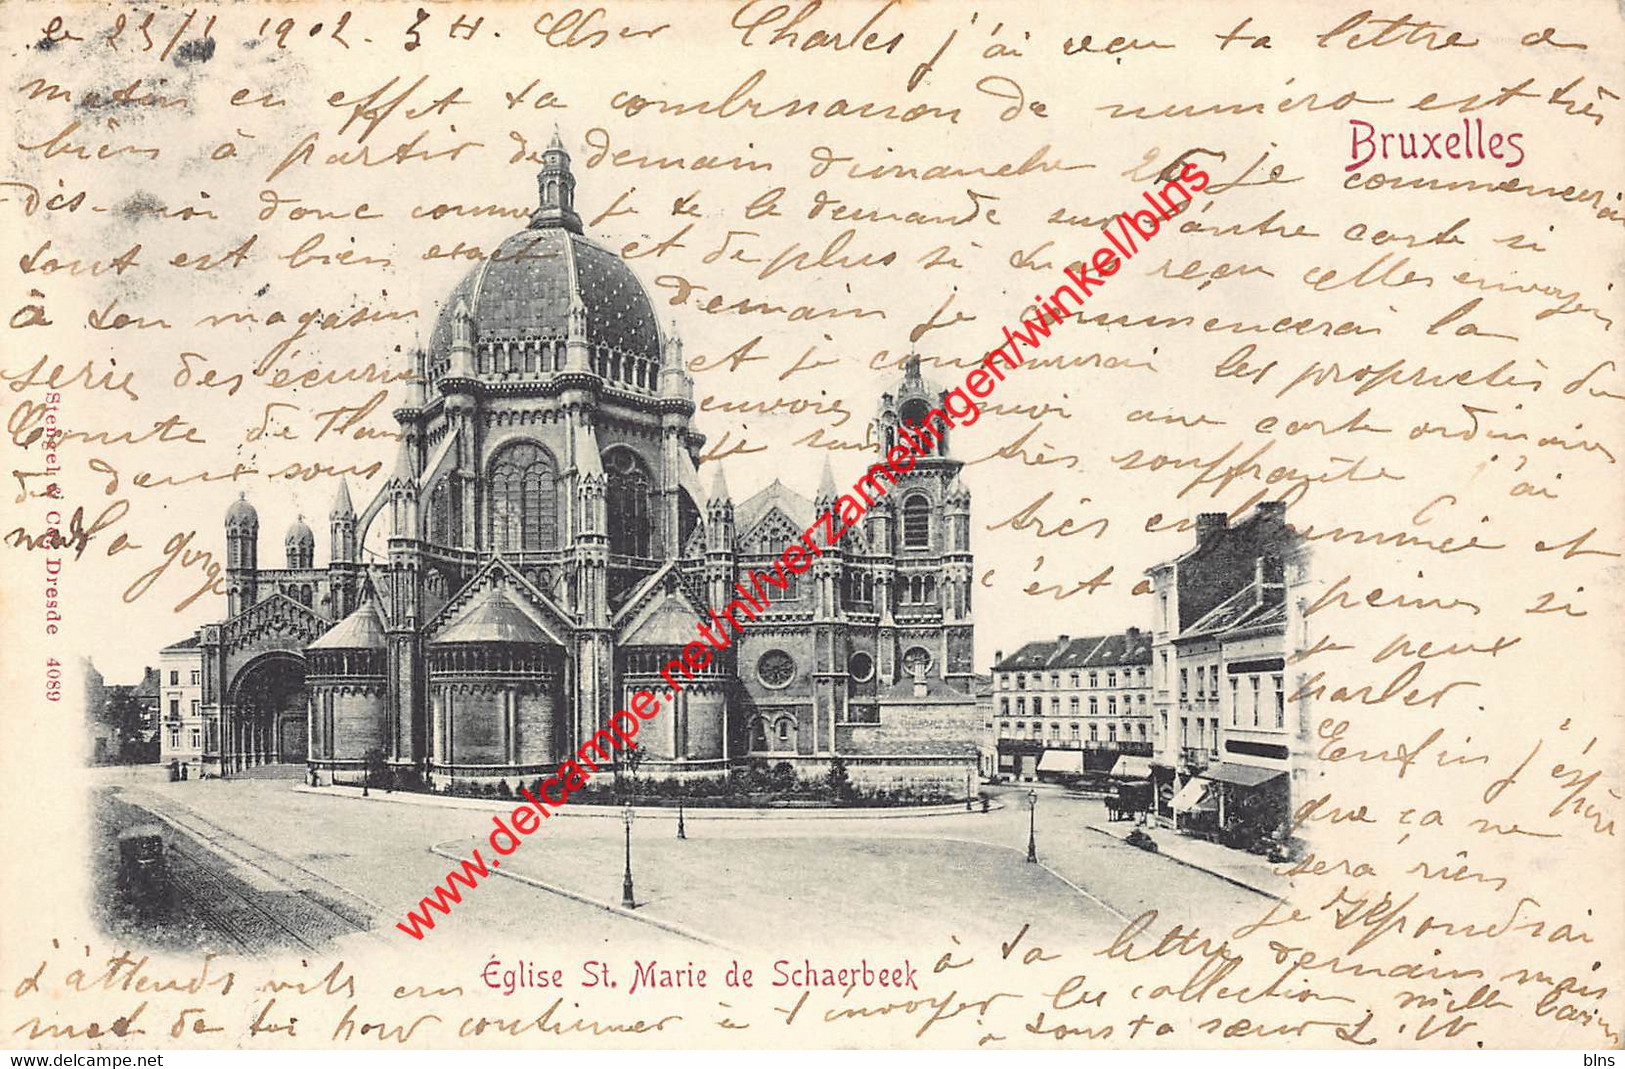 le 25/1 1902. 5 H. Cher Charles j'ai reçu ta lettre ce
matin en effet ta combinaison de numéro est très
bien à partir de demain dimanche 26 je commencerai
dis-moi donc comme je te le demande sur l'autre carte si
tout est bien exact et de plus si tu as reçu celles envoyées
à ton magasin demain je commencerai la
serie des écuries et je continuerai les proprietès du
Comte de Flandre envoies moi une carte ordinaire
de dans sous je suis très souffrante j'ai
la gorge très enflammée et
c'est à peine si
je peux
parler.
Enfin j'espère
que ça ne
sera rien
je répondrai
à ta lettre demain mais
j'attends vite un
mot de toi pour continuer à t'envoyer les collection mille baisers
à tous ta sœur L. W.
Bruxelles
Église St. Marie de Schaerbeek
Stengel & Co., Dresde 4089
www.delcampe.net/nl/verzamelingen/winkel/blns
© www.delcampe.net
blns